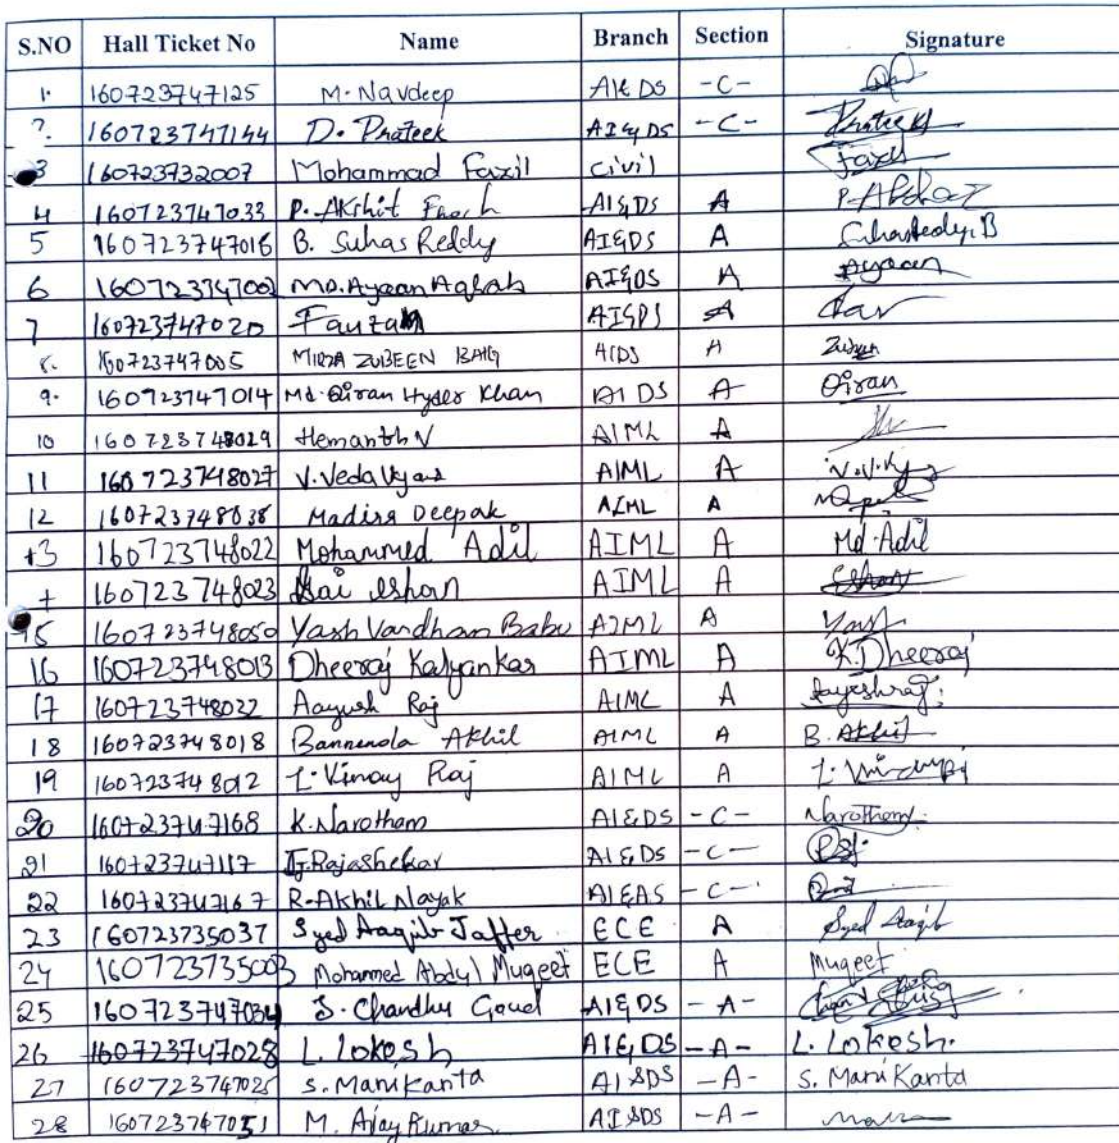 S.NO Hall Ticket No Name Branch Section Signature
1. 160723747125 M. Navdeep AI&DS -C-
2. 160723747144 D. Prateek AI&DS -C- Prateek
3 160723732007 Mohammad Fazil Civil Fazil
4 160723747033 P. Akshit AI&DS A
5 160723747016 B. Suhas Reddy AI&DS A
6 160723747002 MD. Ayaan Aqhab AI&DS A Ayaan
7 160723747020 Fauzan AI&DS A
8. 160723747005 MIRZA ZUBEEN BAIG AIDS A
9. 160723747014 Md. Qiran Hyder Khan AI DS A Qiran
10 160723748029 Hemanth V AIML A
11 160723748027 V. Veda Vyas AIML A
12 160723748038 Madisa Deepak AIML A
13 160723748022 Mohammed Adil AIML A Md Adil
160723748023 Sai Eshan AIML A Eshan
15 160723748050 Yash Vardhan Babu AIML A Yash
16 160723748013 Dheeraj Kalyankar AIML A K. Dheeraj
17 160723748022 Aayush Raj AIML A
18 160723748018 Bannenola Akhil AIML A B. Akhil
19 160723748012 L. Vinay Raj AIML A
20 160723747168 K. Narotham AI&DS -C- Narotham
21 160723747117 G. Rajashekar AI&DS -C-
22 160723747167 R. Akhil Nayak AI&AS -C-
23 160723735037 Syed Aaqib Jaffer ECE A Syed Aaqib
24 160723735003 Mohammed Abdul Muqeet ECE A Muqeet
25 160723747034 S. Chandhu Goud AI&DS -A-
26 160723747028 L. Lokesh AI&DS -A- L. Lokesh.
27 160723747025 S. Manikanta AI&DS -A- S. ManiKanta
28 160723747051 M. Ajay Kumar AI&DS -A-